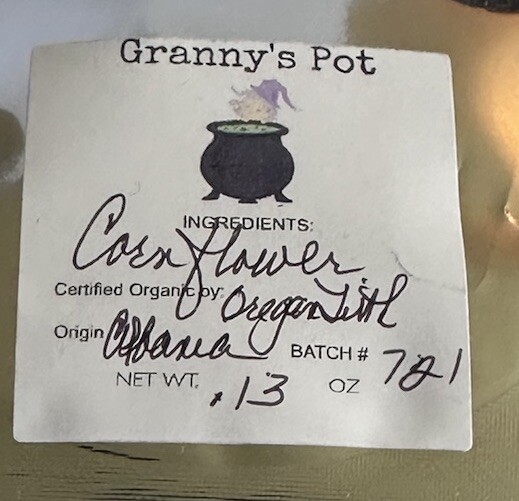 Granny's Pot
INGREDIENTS:
Cornflower
Certified Organic by: Oregon Tilth
Origin Albania
BATCH # 721
NET WT. .13 OZ